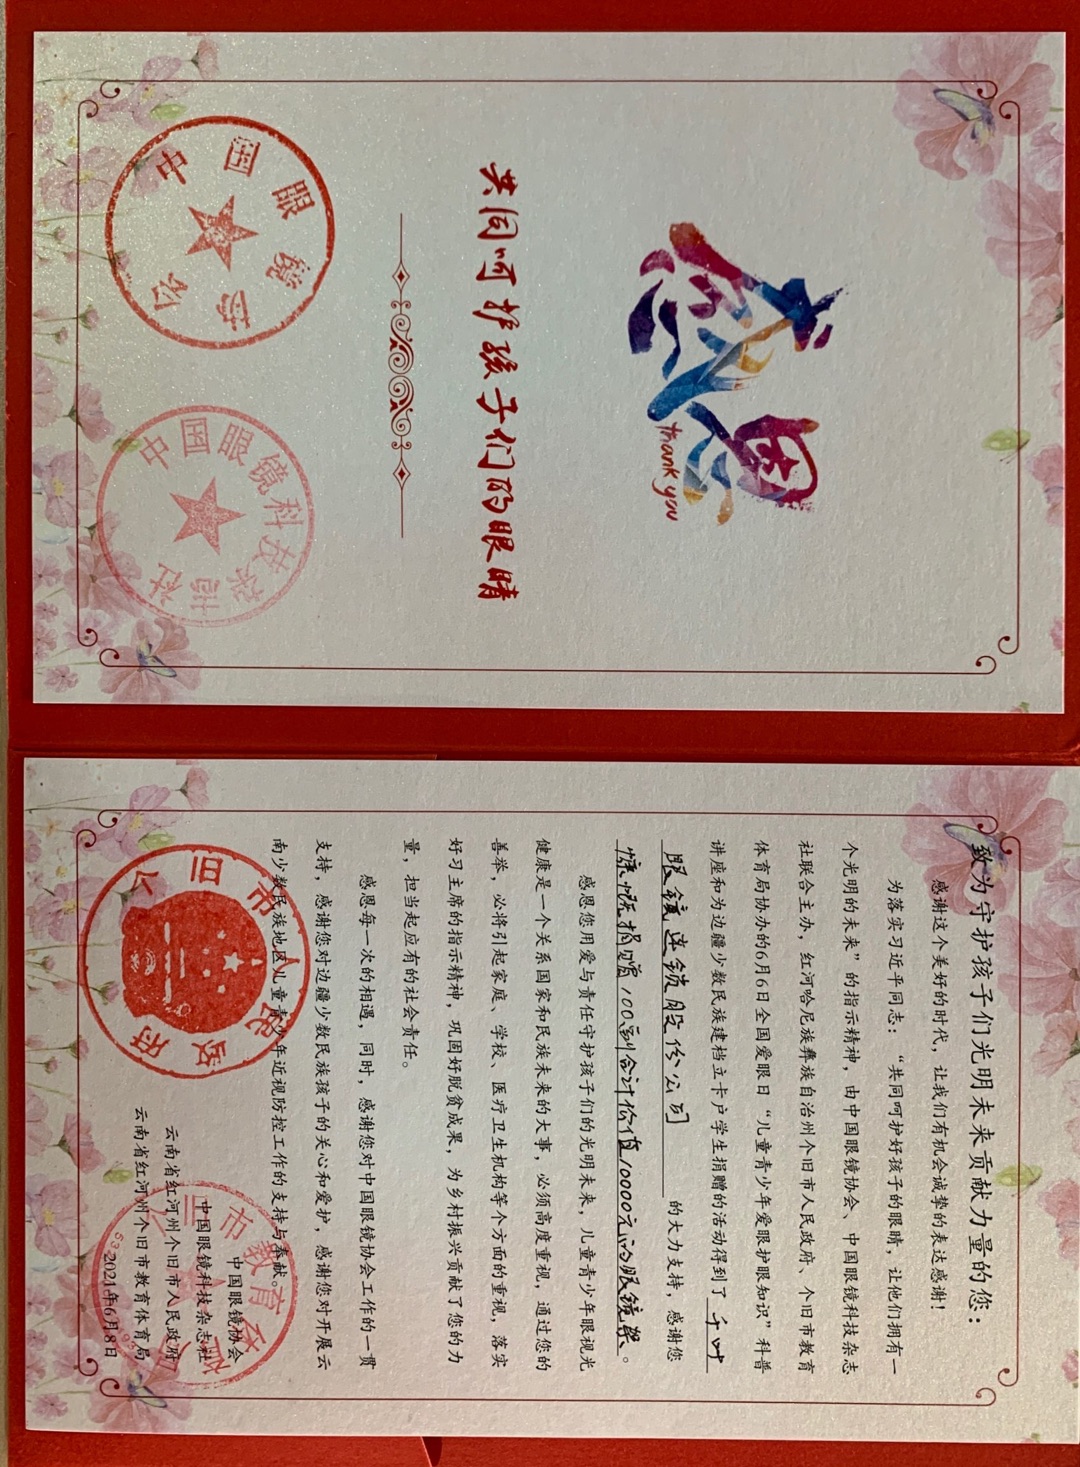 感恩
thank you
共同呵护孩子们的眼睛
中国眼镜协会
中国眼镜科技杂志社
致为守护孩子们光明未来贡献力量的您:
感谢这个美好的时代,让我们有机会诚挚的表达感谢!
为落实习近平同志:“共同呵护好孩子的眼睛,让他们拥有一
个光明的未来”的指示精神,由中国眼镜协会、中国眼镜科技杂志
社联合主办,红河哈尼族彝族自治州个旧市人民政府、个旧市教育
体育局协办的6月6日全国爱眼日“儿童青少年爱眼护眼知识”科普
讲座和为边疆少数民族建档立卡户学生捐赠的活动得到了 千叶
眼镜连锁股份公司 的大力支持,感谢您
慷慨捐赠100副合计价值10000元的眼镜架。
感恩您用爱与责任守护孩子们的光明未来,儿童青少年眼视光
健康是一个关系国家和民族未来的大事,必须高度重视,通过您的
善举,必将引起家庭、学校、医疗卫生机构等个方面的重视,落实
好习主席的指示精神,巩固好脱贫成果,为乡村振兴贡献了您的力
量,担当起应有的社会责任。
感恩每一次的相遇,同时,感谢您对中国眼镜协会工作的一贯
支持,感谢您对边疆少数民族孩子的关心和爱护,感谢您对开展云
南少数民族地区儿童青少年近视防控工作的支持与奉献。
中国眼镜协会
中国眼镜科技杂志社
云南省红河州个旧市人民政府
云南省红河州个旧市教育体育局
2021年6月8日
个旧市人民政府
个旧市教育体育局